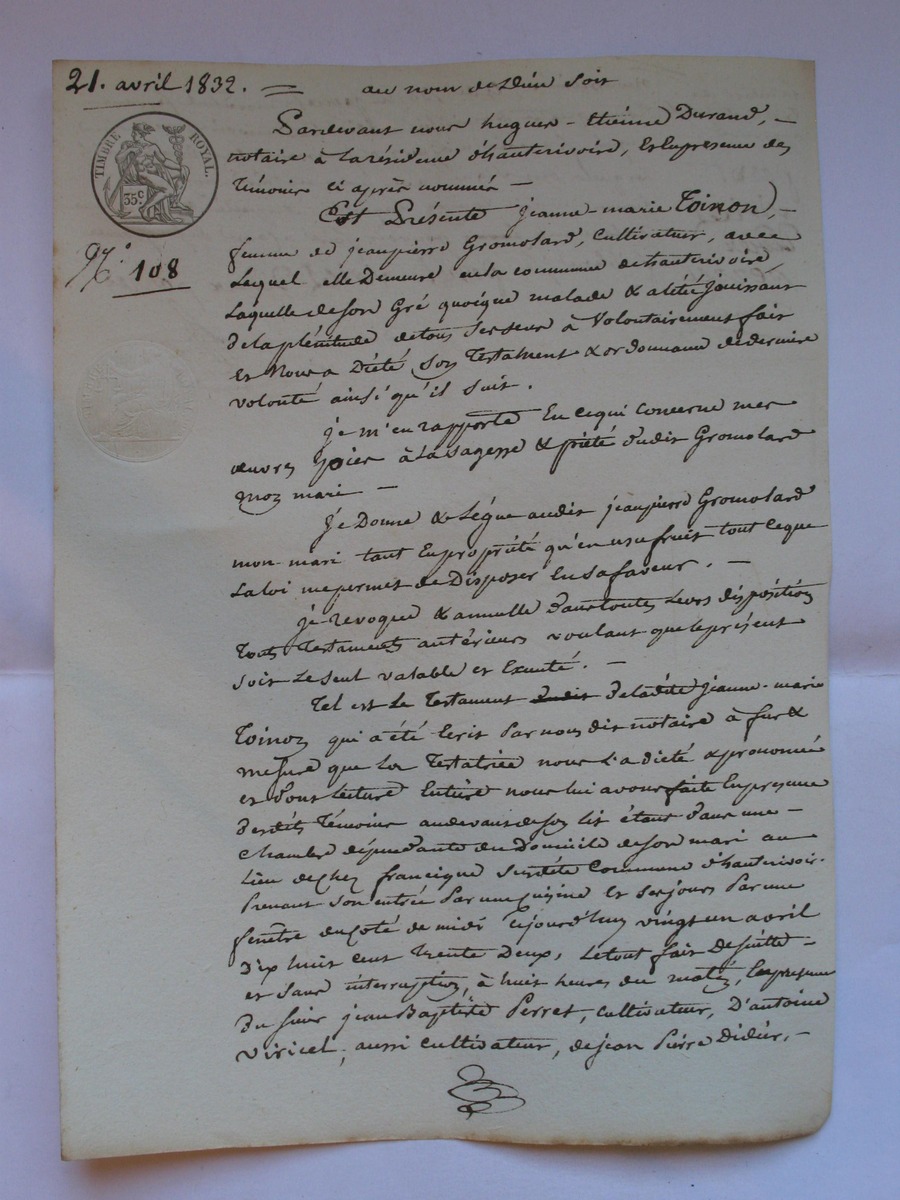 21. avril 1832. = au nom de Dieu soit
TIMBRE ROYAL.
35c
No. 108
Pardevant nous hugues-Etienne Durand, -
notaire à la résidence d'hauterivoire, & en presence des
témoins ci après nommés -
Est Présente jeanne-marie Toinon, -
femme de jeanpierre Gromolard, Cultivateur, avec
Lequel elle Demeure en la commune de hauterivoire,
Laquelle de son Gré quoique malade & alitée jouissant
de la plénitude de tous ses sens à Volontairement fait
et Nous a Dicté son Testament & ordonnance de derniere
volonté ainsi qu'il suit.
je m'en rapporte En ce qui concerne mes
œuvres pies à la sagesse & piété dudit Gromolard
mon mari -
je Donne & Légue audit jeanpierre Gromolard
mon mari tant En propriété qu'en usufruit tout ce que
La loi me permet de Disposer En sa faveur. -
je revoque & annulle dans toutes Leurs dispositions
Tous Testaments antérieurs voulant que le présent
soit Le seul valable et Exécuté. -
Tel est Le Testament de ladite jeanne-marie
Toinon qui a été Ecrit Par nous dit notaire à fur &
mesure que La Testatrice nous L'a dicté & prononcé
et dont Lecture Entière nous lui avons faite En presence
desdits Témoins au devant de son lit étant dans une -
Chambre dépendante du Domicile de son mari au
Lieu de chez francique susdite Commune d'hauterivoir.
Prenant son entrée Par une cuisine Et ses jours Par une
fenêtre du coté de midi cejourd'huy vingt un avril
Dix huit cent trente Deux, Le tout fait de suitte -
et sans interruption, à huit heures du matin, En presence
du sieur jean Baptiste Perret, cultivateur, D'antoine
Viricel, aussi cultivateur, de jean Pierre Didier, -